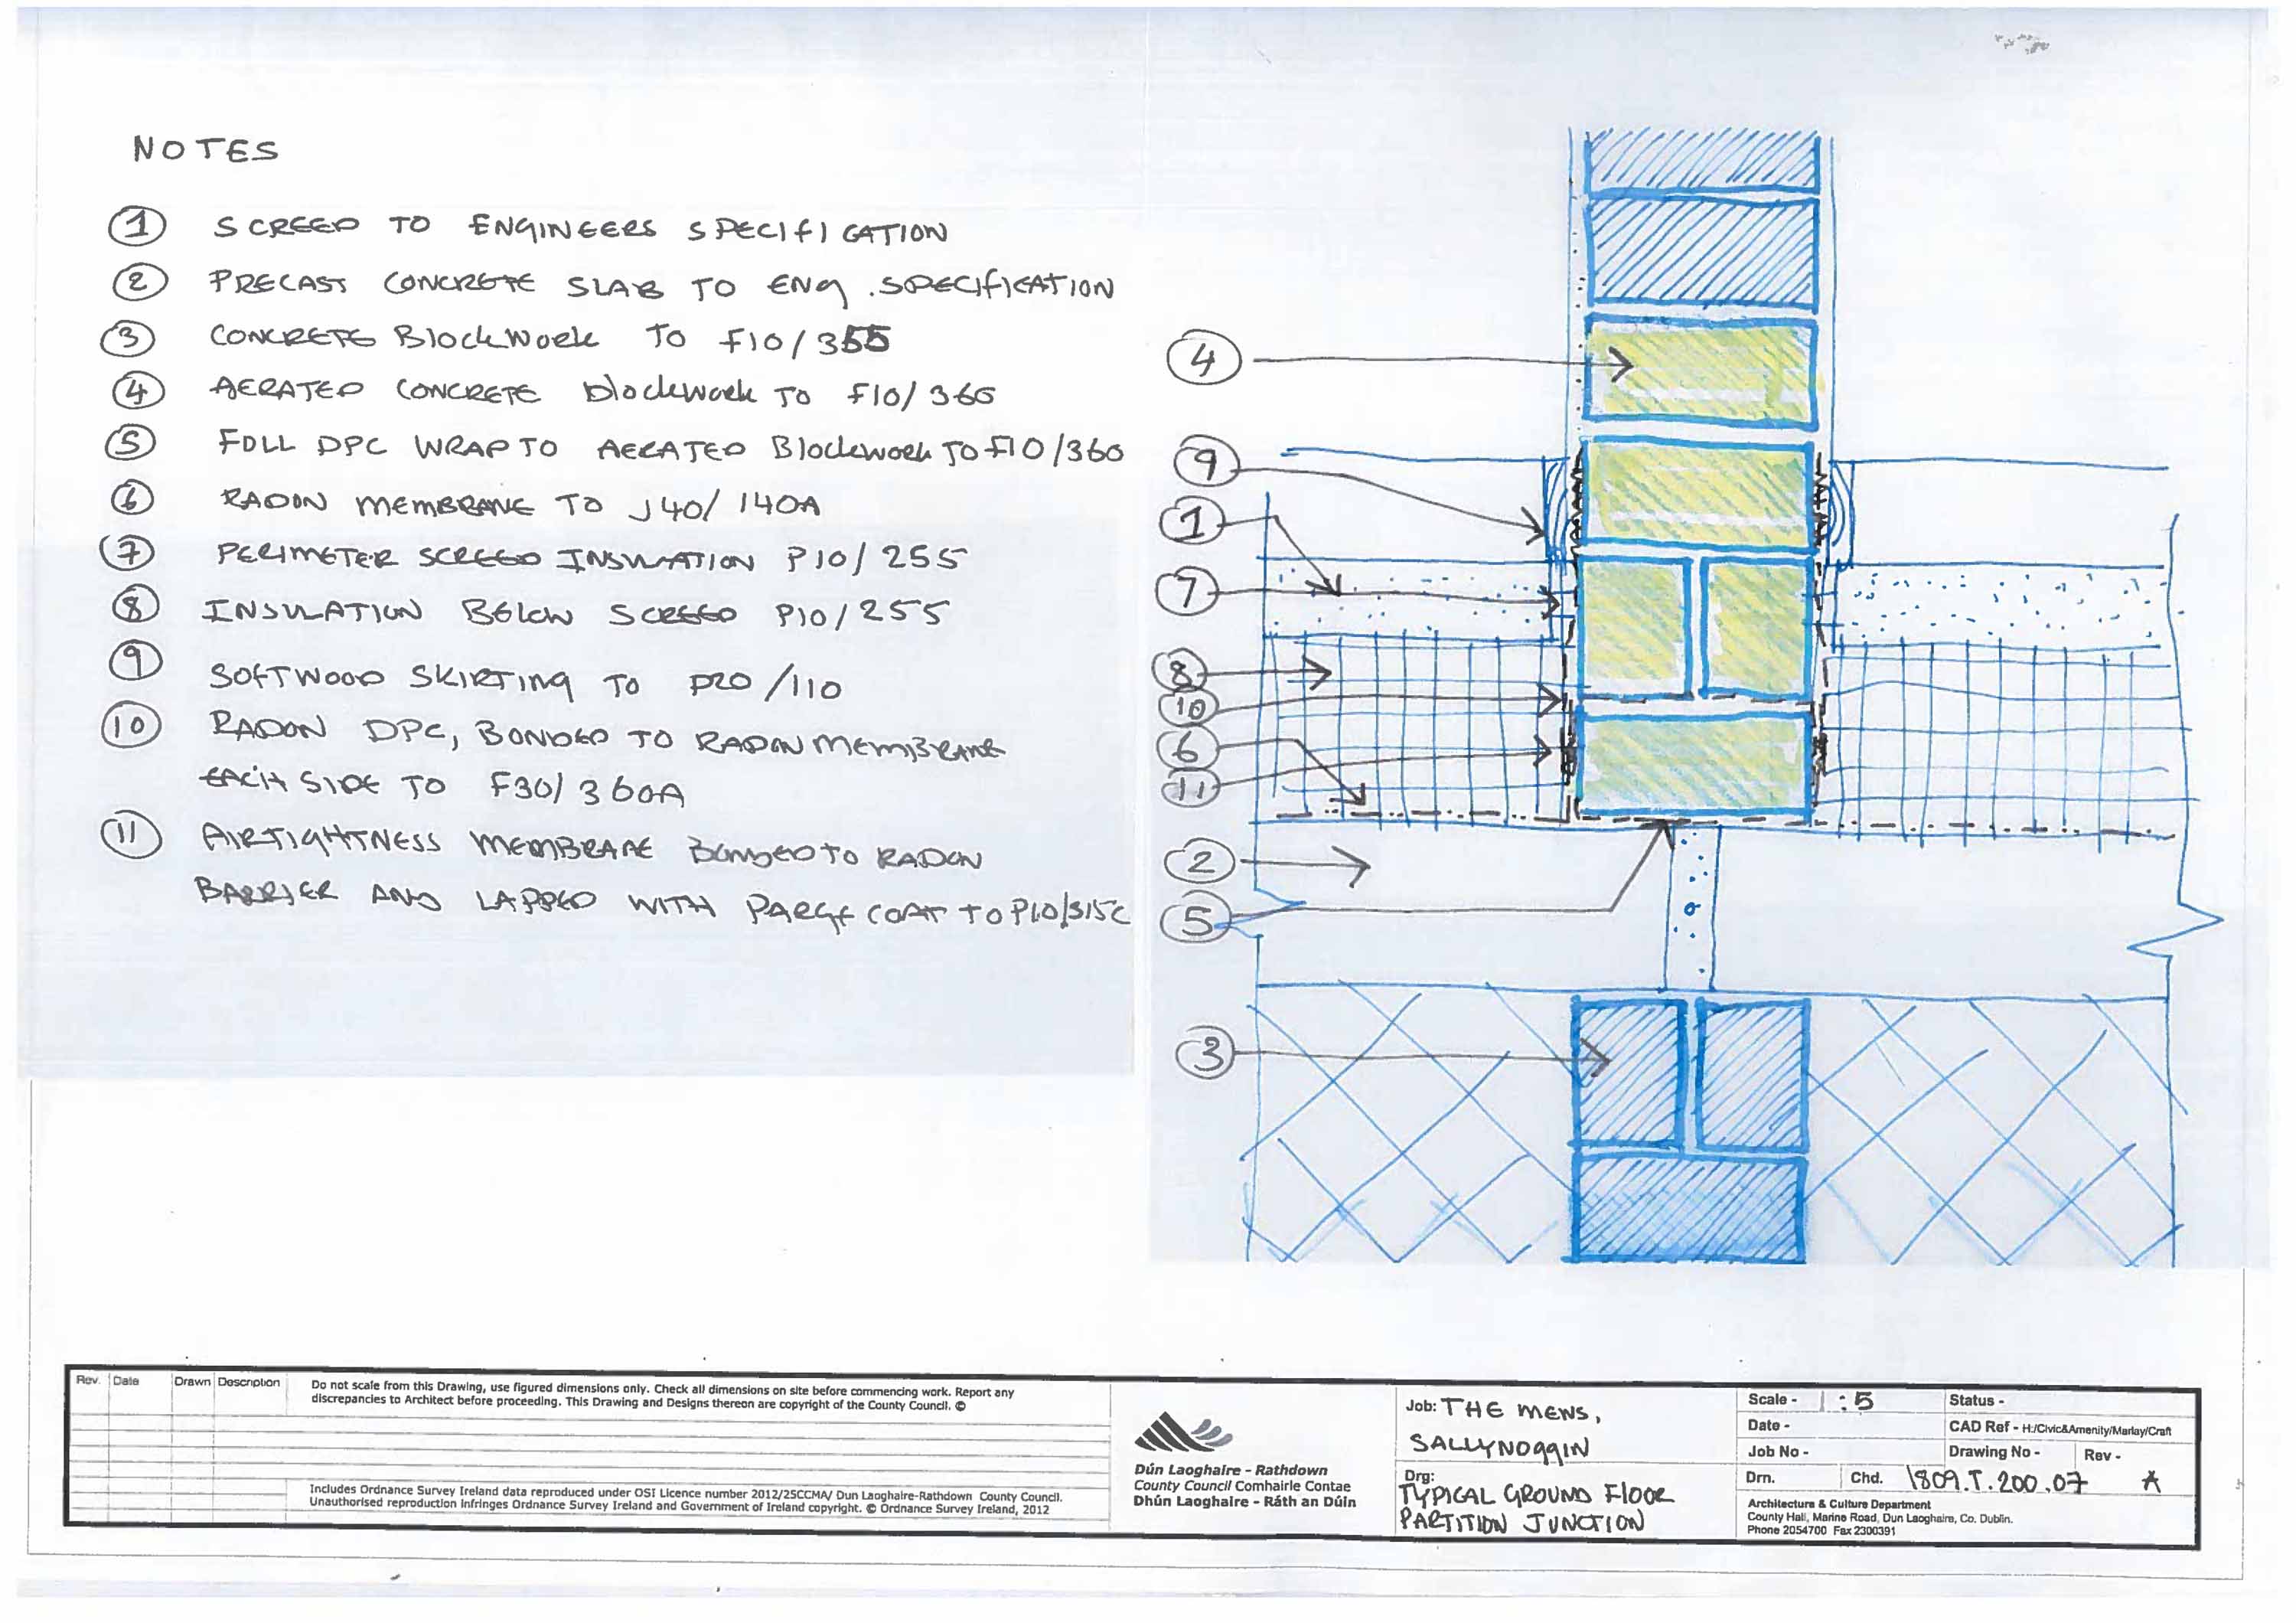 NOTES
1 SCREED TO ENGINEERS SPECIFICATION
2 PRECAST CONCRETE SLAB TO ENG. SPECIFICATION
3 CONCRETE BLOCKWORK TO F10/355
4 AERATED CONCRETE BLOCKWORK TO F10/360
5 FULL DPC WRAP TO AERATED BLOCKWORK TO F10/360
6 RADON MEMBRANE TO J40/140A
7 PERIMETER SCREED INSULATION P10/255
8 INSULATION BELOW SCREED P10/255
9 SOFTWOOD SKIRTING TO P20/110
10 RADON DPC, BONDED TO RADON MEMBRANE
EACH SIDE TO F30/360A
11 AIRTIGHTNESS MEMBRANE BONDED TO RADON
BARRIER AND LAPPED WITH PARGE COAT TO P10/315C
4
9
1
7
8
10
6
11
2
5
3
Rev. Date Drawn Description
Do not scale from this Drawing, use figured dimensions only. Check all dimensions on site before commencing work. Report any
discrepancies to Architect before proceeding. This Drawing and Designs thereon are copyright of the County Council. ©
Includes Ordnance Survey Ireland data reproduced under OSI Licence number 2012/25CCMA/ Dun Laoghaire-Rathdown County Council.
Unauthorised reproduction infringes Ordnance Survey Ireland and Government of Ireland copyright. © Ordnance Survey Ireland, 2012
Dún Laoghaire - Rathdown
County Council Comhairle Contae
Dhún Laoghaire - Ráth an Dúin
Job: THE MEWS,
SALLYNOGGIN
Drg:
TYPICAL GROUND FLOOR
PARTITION JUNCTION
Scale - 1:5
Status -
Date -
CAD Ref - H:/Civic&Amenity/Marlay/Craft
Job No -
Drawing No - Rev -
Drn. Chd. 1809.T.200.07 A
Architecture & Culture Department
County Hall, Marine Road, Dun Laoghaire, Co. Dublin.
Phone 2054700 Fax 2300391